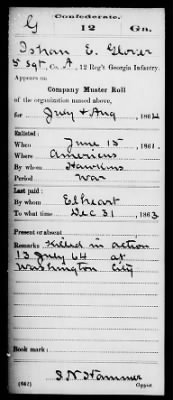 Confederate.
G 12 Ga.
Isham E. Glover
5 Sgt, Co. A, 12 Reg't Georgia Infantry.
Appears on
Company Muster Roll
of the organization named above,
for July & Aug, 1864
Enlisted:
When June 15, 1861.
Where Americus
By whom Hawkins
Period War
Last paid:
By whom Elheart
To what time Dec 31, 1863
Present or absent
Remarks: Killed in action
13 July 64 at
Washington City
Book mark:
(642) S N Hammer
Copyist.